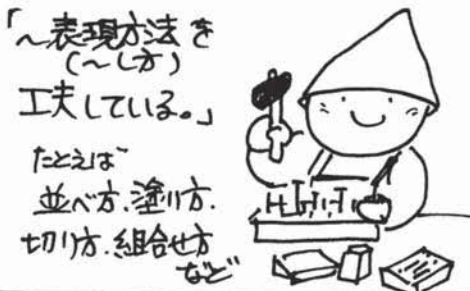 「～表現方法を
（～し方）
工夫している。」
たとえば
並べ方、塗り方、
切り方、組合せ方
など